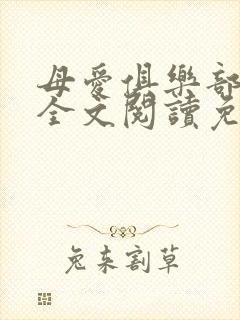 母愛俱樂部
全文閱讀免
兔来割草